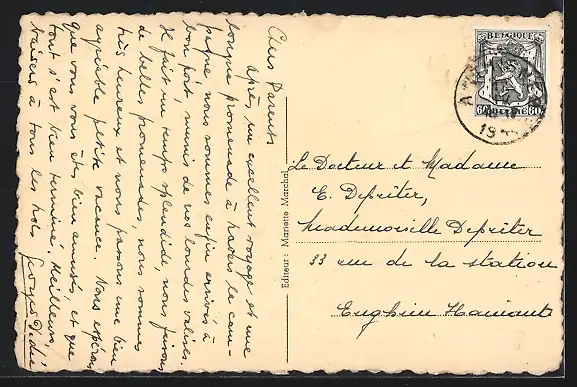 Chers Parents
Après un excellent voyage et une
longue promenade à travers la cam-
pagne nous sommes enfin arrivés à
bon port munis de nos lourdes valises.
Il fait un temps splendide, nous faisons
de belles promenades, nous sommes
très heureux et nous passons une bien
agréable petite vacance. Nous espérons
que vous vous êtes bien amusés, et que
tout s'est bien terminé. Meilleurs
baisers à tous les trois
Editeur: Mariette Marchal
BELGIQUE
60 BELGIE 60
Le Docteur et Madame
E. Depriter,
Mademoiselle Depriter
33 rue de la station
Enghien Hainaut